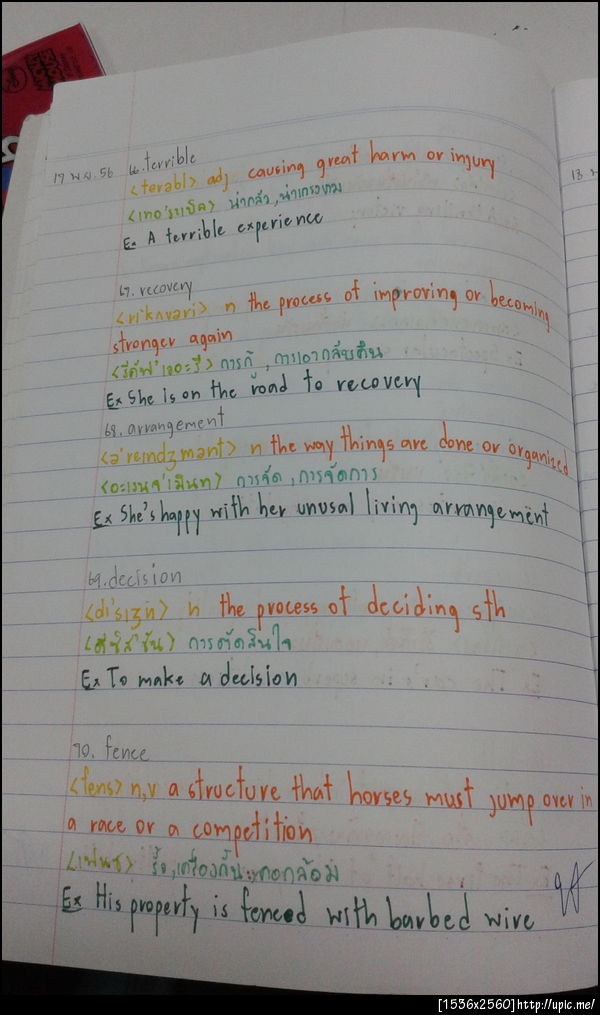 17 พ.ย. 56 66. terrible
<terəbl> adj causing great harm or injury
น่ากลัว, น่าเกรงขาม
Ex A terrible experience
67. recovery
<ri'kʌvəri> n the process of improving or becoming
stronger again
การกู้, การเอากลับคืน
Ex She is on the road to recovery
68. arrangement
<ə'reindʒmənt> n the way things are done or organized
การจัด, การจัดการ
Ex She's happy with her unusal living arrangement
69. decision
<di'siʒn> n the process of deciding sth
<ดิซิส'ชัน> การตัดสินใจ
Ex To make a decision
70. fence
<fens> n,v a structure that horses must jump over in
a race or a competition
<เฟนซ> รั้ว, เครื่องกั้น, คอกล้อม
Ex His property is fenced with barbed wire
18 พ
[1536x2560]http://upic.me/